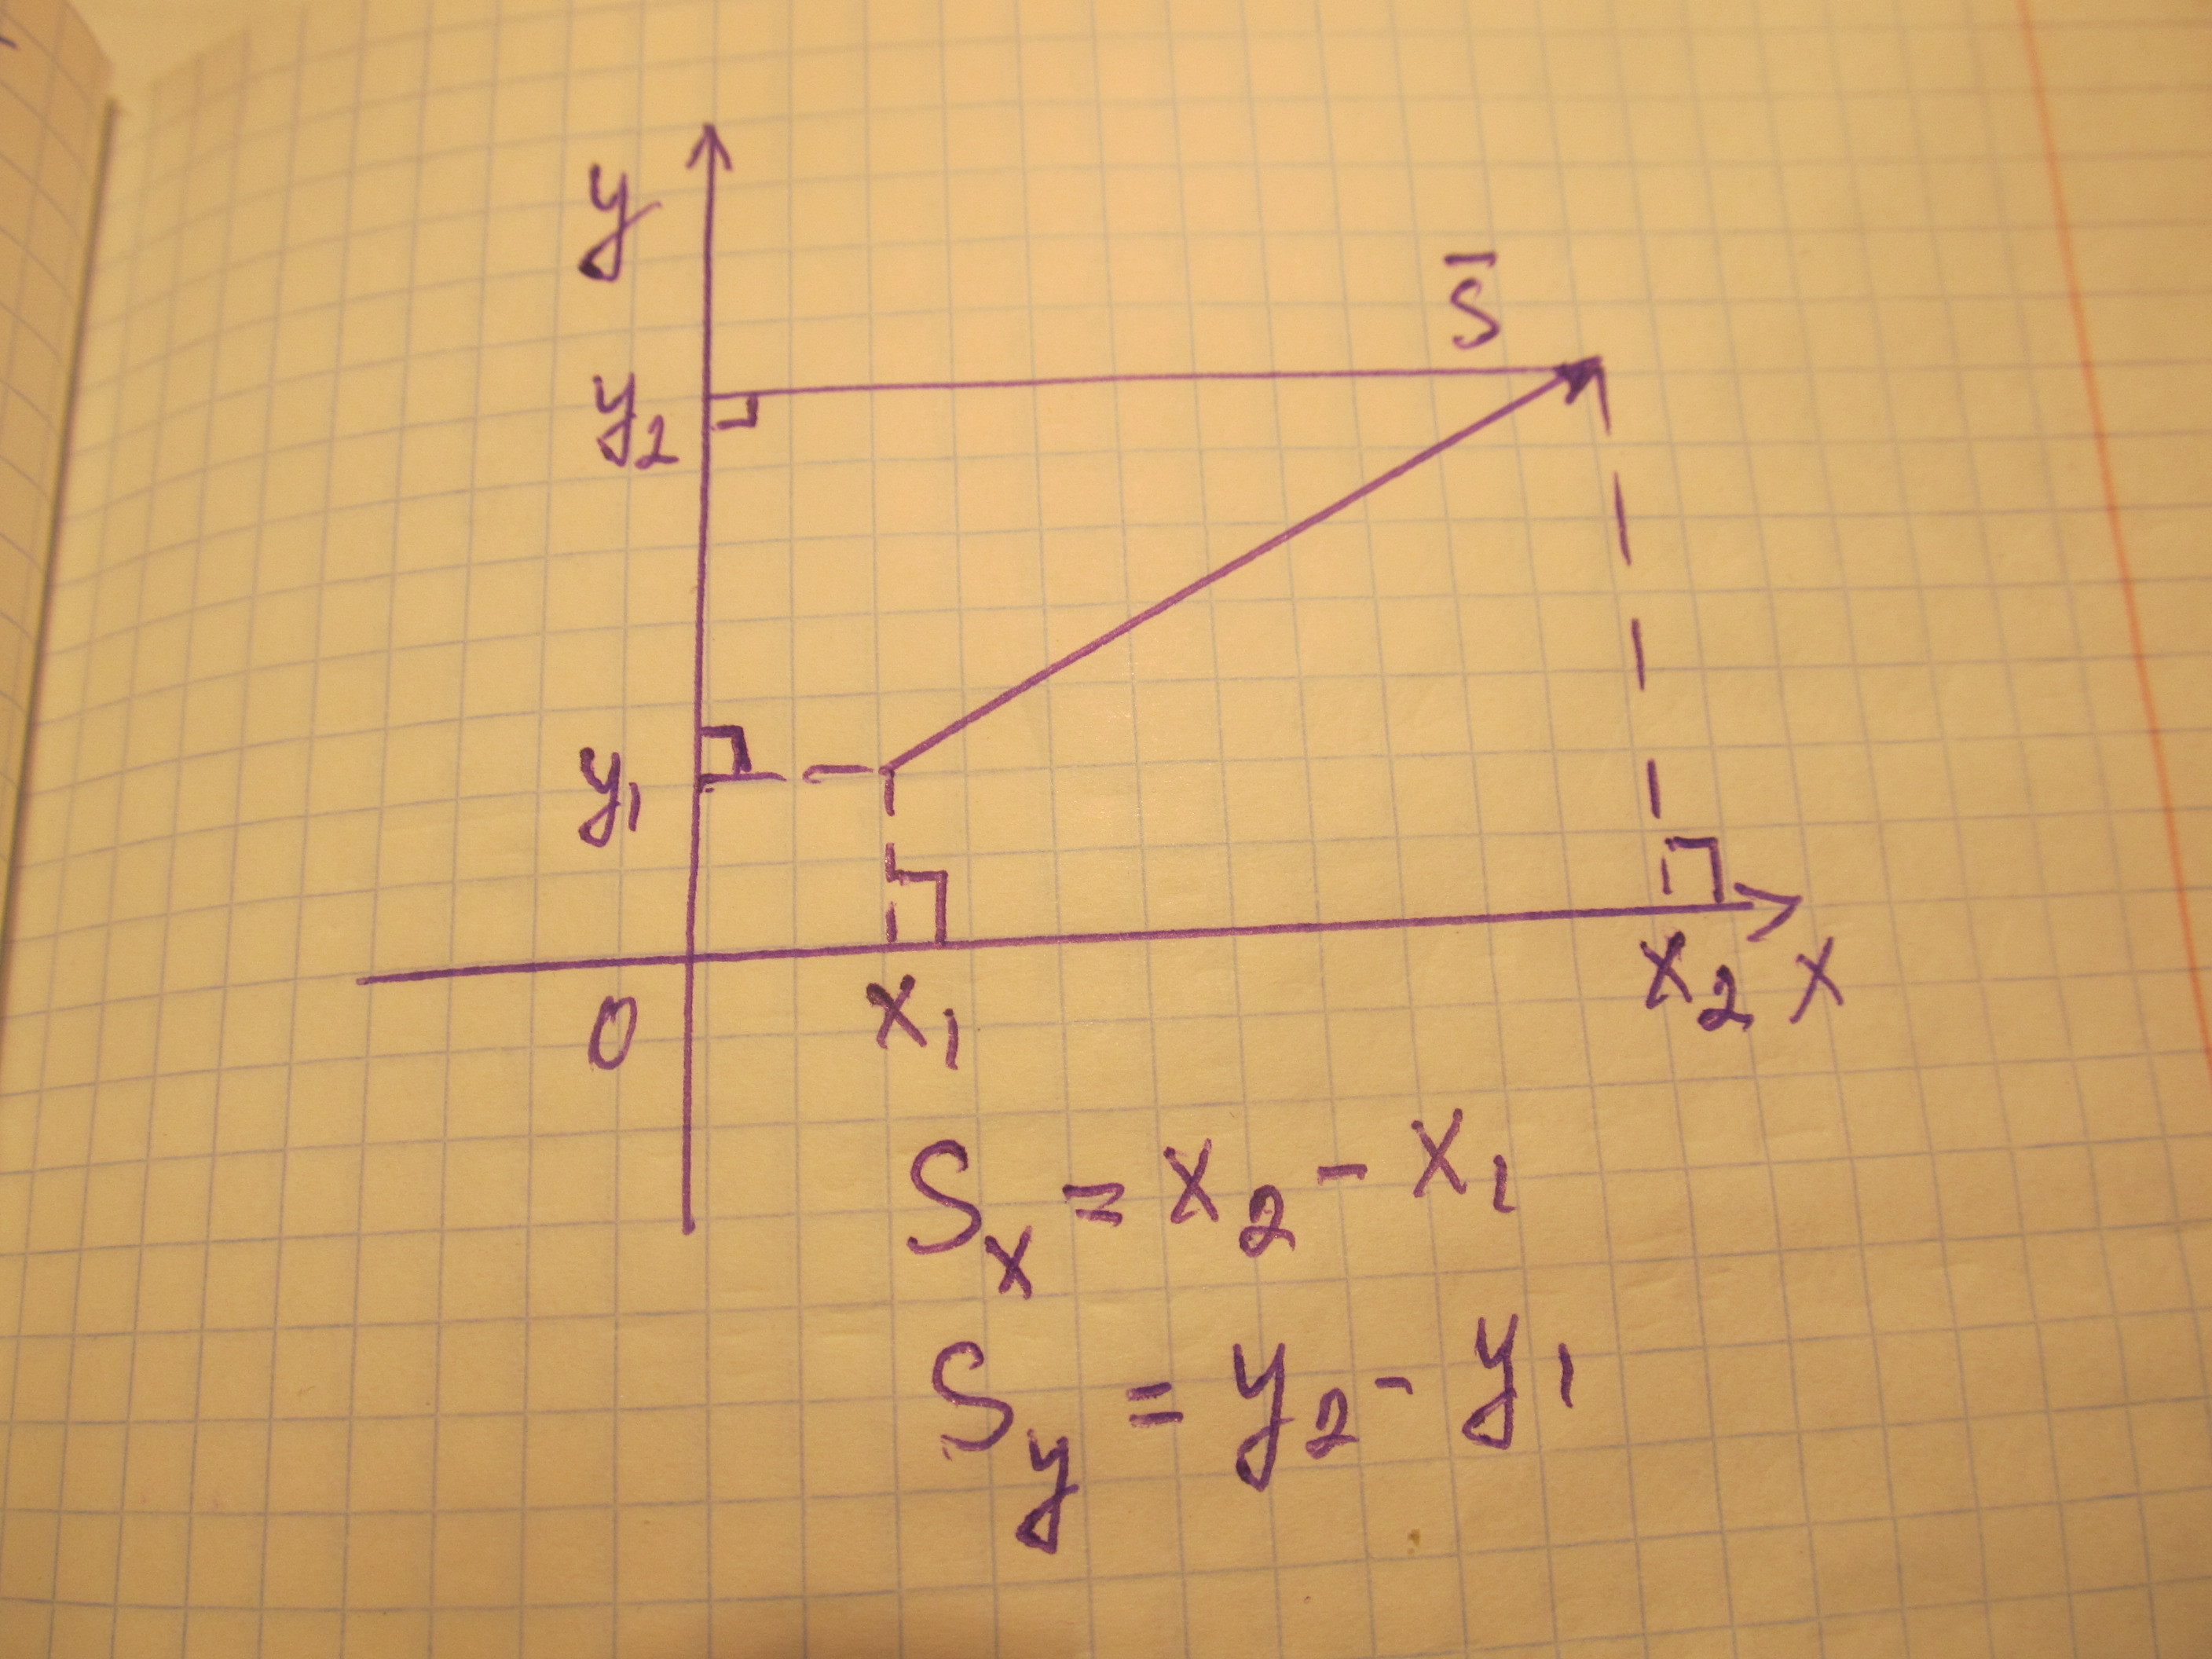 y
S̄
y₂
y₁
0 x₁ x₂ x
Sₓ = x₂ - x₁
S_y = y₂ - y₁